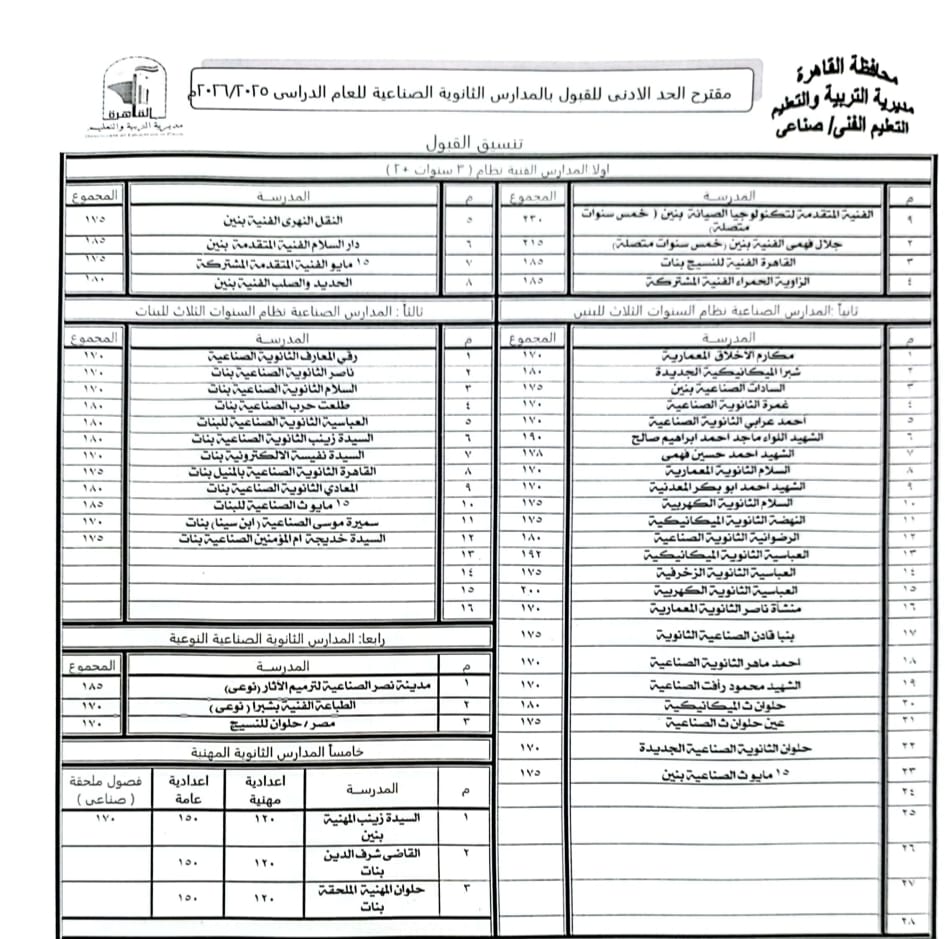 محافظة القاهرة
مديرية التربية والتعليم
التعليم الفنى/ صناعى
مقترح الحد الادنى للقبول بالمدارس الثانوية الصناعية للعام الدراسى ٢٠٢٦/٢٠٢٥م
القاهرة
مديرية التربية والتعليم
تنسيق القبول
اولا المدارس الفنية نظام ( ٣ سنوات +٢ )
م المدرسة المجموع م المدرسة المجموع
٩ الفنية المتقدمة لتكنولوجيا الصيانة بنين ( خمس سنوات متصلة) ٢٣٠ ٥ النقل النهرى الفنية بنين ١٧٥
٢ جلال فهمى الفنية بنين (خمس سنوات متصلة) ٢١٥ ٦ دار السلام الفنية المتقدمة بنين ١٨٥
٣ القاهرة الفنية للنسيج بنات ١٨٥ ٧ ١٥ مايو الفنية المتقدمة المشتركة ١٧٥
٤ الزاوية الحمراء الفنية المشتركة ١٨٥ ٨ الحديد والصلب الفنية بنين ١٨٠
ثانياً :المدارس الصناعية نظام السنوات الثلاث للبنين
م المدرسة المجموع
١ مكارم الأخلاق المعمارية ١٧٠
٢ شبرا الميكانيكية الجديدة ١٨٠
٣ السادات الصناعية بنين ١٧٥
٤ غمرة الثانوية الصناعية ١٧٠
٥ أحمد عرابي الثانوية الصناعية ١٧٠
٦ الشهيد اللواء ماجد احمد ابراهيم صالح ١٩٠
٧ الشهيد احمد حسين فهمى ١٧٨
٨ السلام الثانوية المعمارية ١٧٠
٩ الشهيد احمد ابو بكر المعدنية ١٧٠
١٠ السلام الثانوية الكهربية ١٧٥
١١ النهضة الثانوية الميكانيكية ١٧٥
١٢ الرضوانية الثانوية الصناعية ١٨٠
١٣ العباسية الثانوية الميكانيكية ١٩٢
١٤ العباسية الثانوية الزخرفية ١٧٥
١٥ العباسية الثانوية الكهربية ٢٠٠
١٦ منشأة ناصر الثانوية المعمارية ١٧٠
١٧ بنبا قادن الصناعية الثانوية ١٧٥
١٨ احمد ماهر الثانوية الصناعية ١٧٠
١٩ الشهيد محمود رأفت الصناعية ١٧٠
٢٠ حلوان ث الميكانيكية ١٨٠
٢١ عين حلوان ث الصناعية ١٧٥
٢٢ حلوان الثانوية الصناعية الجديدة ١٧٠
٢٣ ١٥ مايو ث الصناعية بنين ١٧٥
٢٤
٢٥
٢٦
٢٧
٢٨
ثالثاً : المدارس الصناعية نظام السنوات الثلاث للبنات
م المدرسة المجموع
١ رقي المعارف الثانوية الصناعية ١٧٠
٢ ناصر الثانوية الصناعية بنات ١٧٠
٣ السلام الثانوية الصناعية بنات ١٧٠
٤ طلعت حرب الصناعية بنات ١٨٠
٥ العباسية الثانوية الصناعية للبنات ١٨٠
٦ السيدة زينب الثانوية الصناعية بنات ١٨٠
٧ السيدة نفيسة الالكترونية بنات ١٧٠
٨ القاهرة الثانوية الصناعية بالمنيل بنات ١٧٥
٩ المعادي الثانوية الصناعية بنات ١٨٠
١٠ ١٥ مايو ث الصناعية للبنات ١٨٥
١١ سميرة موسى الصناعية (ابن سينا) بنات ١٧٠
١٢ السيدة خديجة ام المؤمنين الصناعية بنات ١٧٥
١٣
١٤
١٥
١٦
رابعا: المدارس الثانوية الصناعية النوعية
م المدرسة المجموع
١ مدينة نصر الصناعية لترميم الآثار (نوعى) ١٨٥
٢ الطباعة الفنية بشبرا ( نوعى) ١٧٠
٣ مصر / حلوان للنسيج ١٧٠
خامساً المدارس الثانوية المهنية
م المدرسة اعدادية مهنية اعدادية عامة فصول ملحقة ( صناعى )
١ السيدة زينب المهنية بنين ١٢٠ ١٥٠ ١٧٠
٢ القاضى شرف الدين بنات ١٢٠ ١٥٠
٣ حلوان المهنية الملحقة بنات ١٢٠ ١٥٠